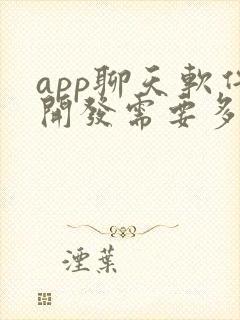 app聊天軟件
開發需要多
湮葉